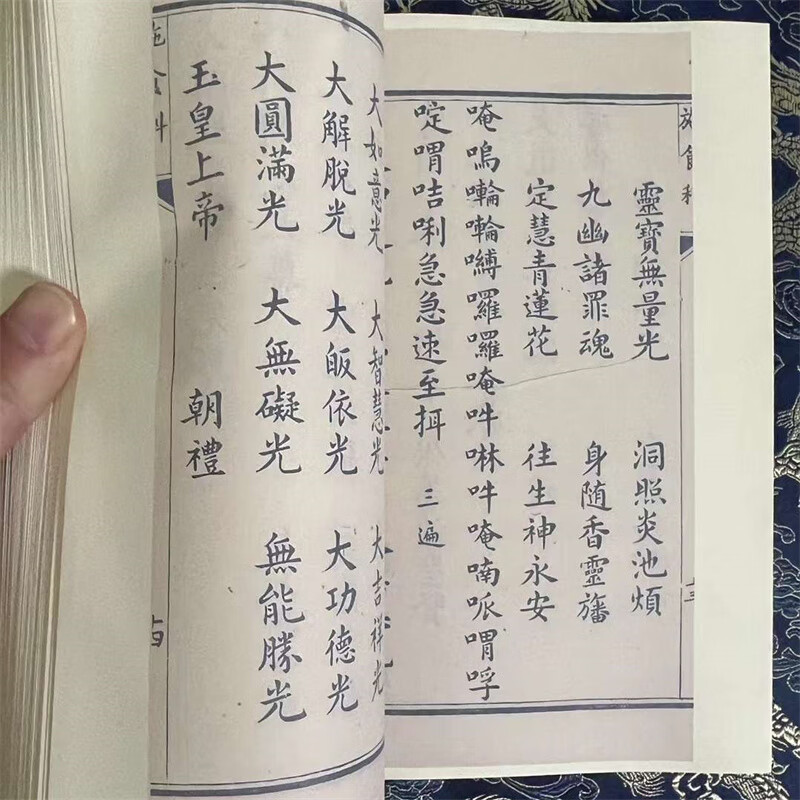 施食科
靈寶無量光　洞照炎池煩
九幽諸罪魂　身随香靈旛
定慧青蓮花　往生神永安
唵嗚嚩囉囉唵吽啉吽唵喃哌喟哹
啶喟咭唎急急速至　三遍
大如意光　大智慧光　大吉祥光
大解脫光　大皈依光　大功德光
大圓滿光　大無礙光　無能勝光
玉皇上帝　朝禮